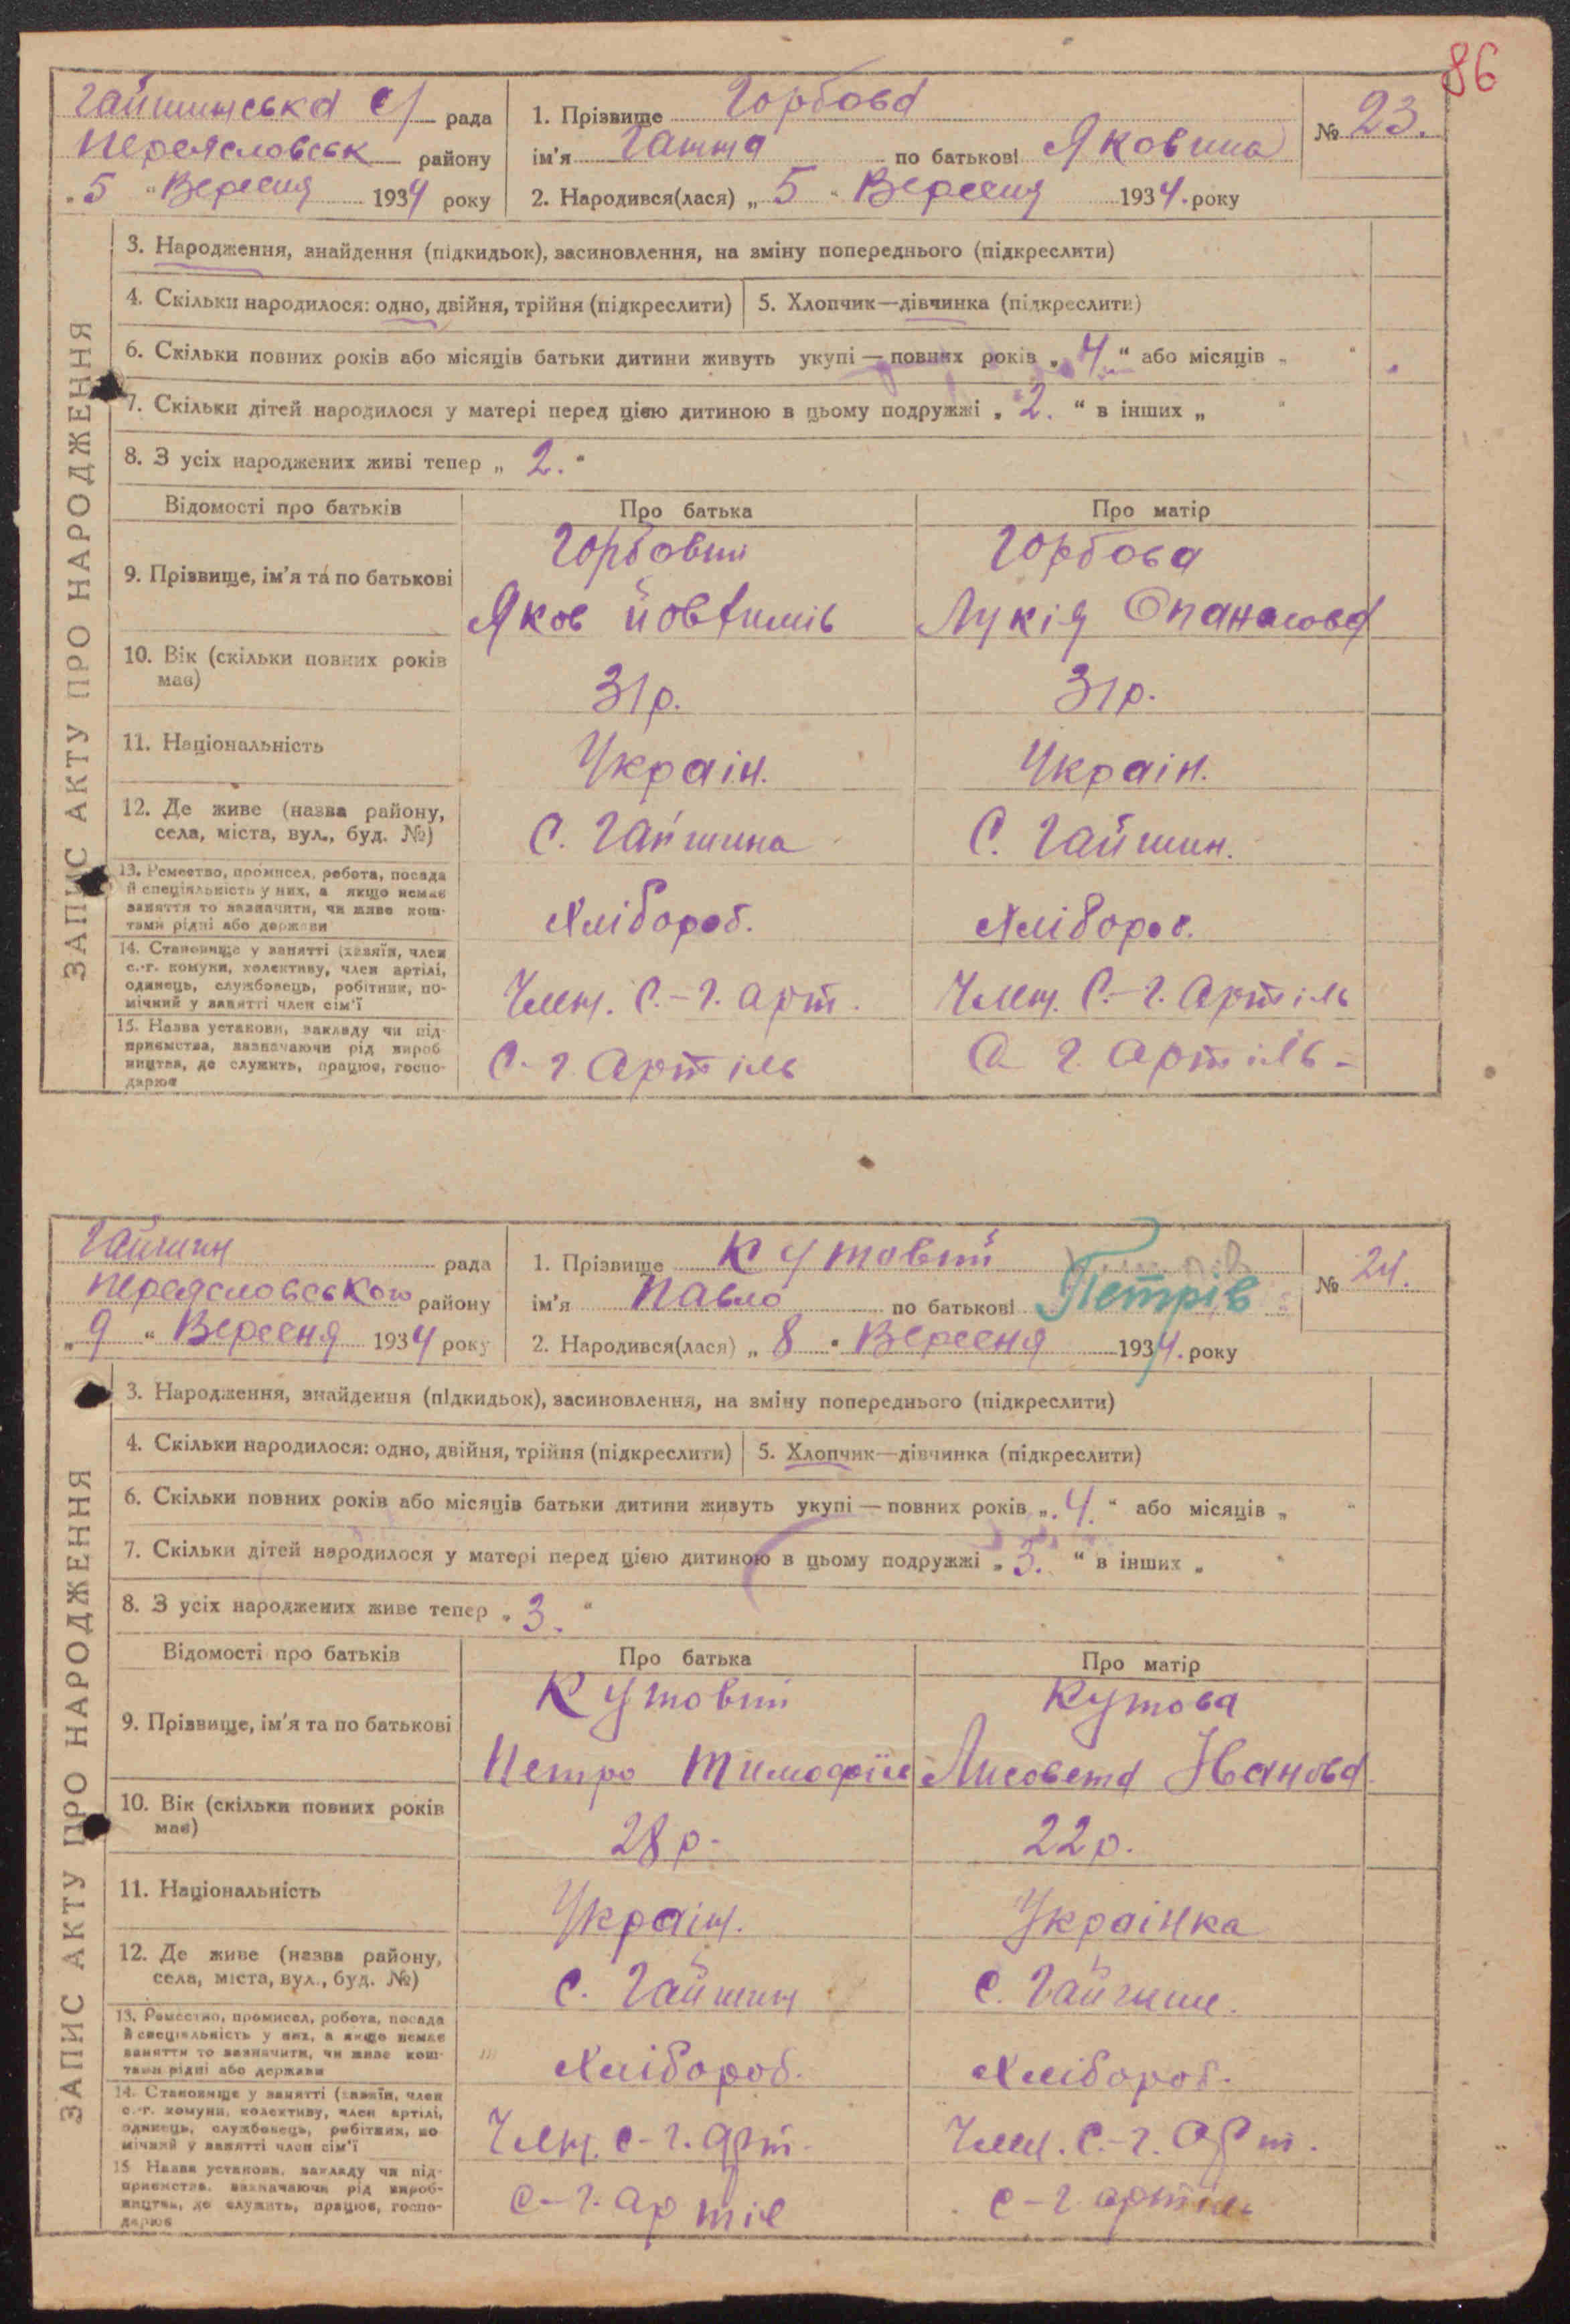 86
Гайшинська с/ рада
Переясловськ району
„5“ Вересня 1934 року
1. Прізвище Горбова
ім'я Ганна по батькові Яковина
2. Народився(лася) „5“ Вересня 1934. року
№ 23.
ЗАПИС АКТУ ПРО НАРОДЖЕННЯ
3. Народження, знайдення (підкидьок), засиновлення, на зміну попереднього (підкреслити)
4. Скільки народилося: одно, двійня, трійня (підкреслити)
5. Хлопчик—дівчинка (підкреслити)
6. Скільки повних років або місяців батьки дитини живуть укупі — повних років „4“ або місяців „ “
7. Скільки дітей народилося у матері перед цією дитиною в цьому подружжі „2.“ в інших „ “
8. З усіх народжених живі тепер „2.“
Відомості про батьків
Про батька
Про матір
9. Прізвище, ім'я та по батькові
Горбовий
Яков Йовтимів
Горбова
Лукія Опанасова
10. Вік (скільки повних років
має)
31р.
31р.
11. Національність
Україн.
Україн.
12. Де живе (назва району,
села, міста, вул., буд. №)
С. Гайшина
С. Гайшин.
13. Ремество, промисел, робота, посада
й спеціяльність у них, а якщо немає
заняття то зазначити, чи живе кош-
тами рідні або держави
Хлібороб.
Хлібороб.
14. Становище у занятті (хазяїн, член
с.-г. комуни, колективу, член артілі,
одинець, службовець, робітник, по-
мічний у занятті член сім'ї
Член. С.-г. арт.
Член. С.-г. Артіль
15. Назва установи, закладу чи під-
приємства, зазначаючи рід вироб-
ництва, де служить, працює, госпо-
дарює
С. г. Артіль
С. г. артіль-
Гайшин рада
Переясловського району
„9“ Вересня 1934 року
1. Прізвище Кутовий
ім'я Павло по батькові Петрів
2. Народився(лася) „8“ Вересня 1934. року
№ 24.
ЗАПИС АКТУ ПРО НАРОДЖЕННЯ
3. Народження, знайдення (підкидьок), засиновлення, на зміну попереднього (підкреслити)
4. Скільки народилося: одно, двійня, трійня (підкреслити)
5. Хлопчик—дівчинка (підкреслити)
6. Скільки повних років або місяців батьки дитини живуть укупі — повних років „4.“ або місяців „ “
7. Скільки дітей народилося у матері перед цією дитиною в цьому подружжі „3.“ в інших „ “
8. З усіх народжених живе тепер „3.“
Відомості про батьків
Про батька
Про матір
9. Прізвище, ім'я та по батькові
Кутовий
Петро Тимофіїв
Кутова
Лисовета Іванова
10. Вік (скільки повних років
має)
28р.
22р.
11. Національність
Україн.
Українка
12. Де живе (назва району,
села, міста, вул., буд. №)
С. Гайшин
С. Гайшин.
13. Ремество, промисел, робота, посада
й спеціяльність у них, а якщо немає
заняття то зазначити, чи живе кош-
тами рідні або держави
Хлібороб.
Хлібороб.
14. Становище у занятті (хазяїн, член
с.-г. комуни, колективу, член артілі,
одинець, службовець, робітник, по-
мічний у занятті член сім'ї
Член. с-г. арт.
Член. С.-г. Арт.
15 Назва установи, закладу чи під-
приємства, зазначаючи рід вироб-
ництва, де служить, працює, госпо-
дарює
С-г. артіл
с-г. артіль